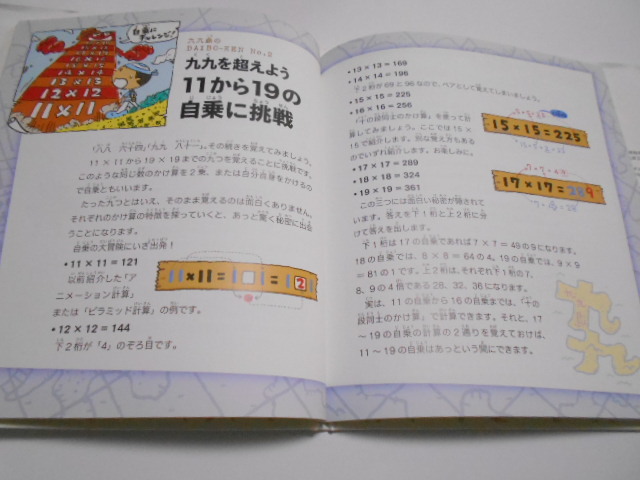 九九島の
DAIBO-KEN No.2
九九を超えよう
11から19の
自乗に挑戦
自乗に
チャレンジ!
13×13
12×12
11×11
「八八 六十四」「九九 八十一」、その続きを覚えてみましょう。
11×11から19×19までの九つを覚えることに挑戦です。
このような同じ数のかけ算を2乗、または自分自身をかけるの
で自乗ともいいます。
たった九つとはいえ、そのまま覚えるのは面白くありません。
それぞれのかけ算の特徴を探っていくと、あっと驚く秘密に出会
うことになります。
自乗の大冒険にいざ出発!
•11×11=121
以前紹介した「ア
ニメーション計算」
または「ピラミッド計算」の例です。
1×11=1□1=□2
•12×12=144
下2桁が「4」のぞろ目です。
•13×13=169
•14×14=196
下2桁が69と96なので、ペアとして覚えてしまいましょう。
•15×15=225
•16×16=256
「十の段同士のかけ算」を使って計
算してみましょう。ここでは15×
15で紹介します。別な覚え方もある
のでいずれ紹介します。お楽しみに。
15×15=225
•17×17=289
•18×18=324
•19×19=361
17×17=289
この三つには面白い秘密が隠されて
います。答えを下1桁と上2桁に分
けて答えを出します。
下1桁は17の自乗であれば7×7=49の9になります。
18の自乗では、8×8=64の4、19の自乗では、9×9
=81の1です。上2桁は、それぞれ下1桁の7、
8、9の4倍である28、32、36になります。
実は、11の自乗から16の自乗までは、「十
の段同士のかけ算」で計算できます。それと、17
～19の自乗の計算の2通りを覚えておけば、
11～19の自乗はあっという間にできます。